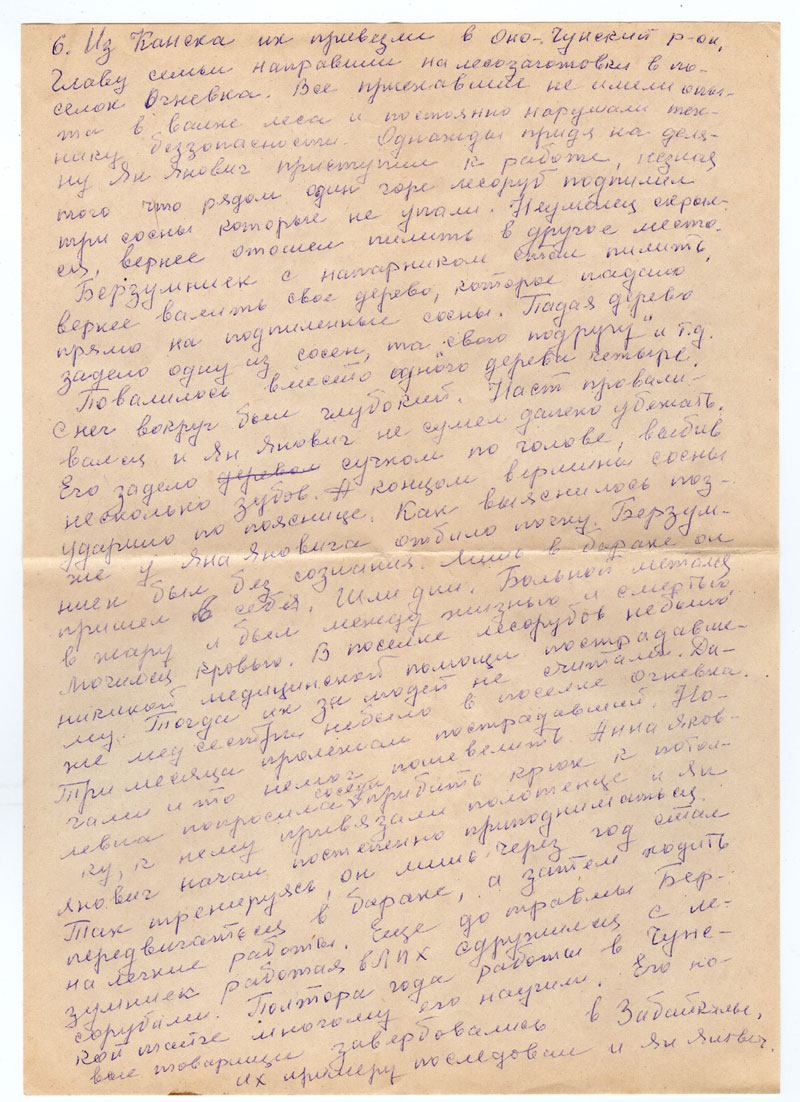 6. Из Канска их привезли в Оно-Чунский р-он,
Главу семьи направили на лесозаготовки в по-
селок Огневка. Все приехавшие не имели опы-
та в валке леса и постоянно нарушали тех-
нику беззопасности. Однажды придя на деля-
ну Ян Янович приступил к работе, незная
того что рядом один горе лесоруб подпилил
три сосны которые не упали. Неумелец скрыл-
ся, вернее отошел пилить в другое место.
Берзумниек с напарником стал пилить,
вернее валить свое дерево, которое падало
прямо на подпиленные сосны. Падая дерево
задело одну из сосен, та свою "подругу" и т.д.
Повалилось вместо одного дерева четыре.
Снег вокруг был глубокий. Наст провали-
вался и Ян Янович не сумел далеко убежать.
Его задело деревом сучком по голове, выбив
несколько зубов. А концом вершины сосны
ударило по пояснице. Как выяснилось поз-
же у Яна Яновича отбило почку. Берзум-
ниек был без сознания. Лишь в бараке он
пришел в себя. Шли дни. Больной метался
в жару и был между жизнью и смертью,
мочился кровью. В поселке лесорубов небыло
никакой медицинской помощи пострадавше-
му. Тогда их за людей не считали. Да-
же медсестры небыло в поселке Огневка.
Три месяца пролежал пострадавший. Но-
гами и то немог пошевелить. Анна Яков-
левна попросила соседа прибить крюк к потол-
ку, к нему привязали полотенце и Ян
Янович начал постепенно приподниматься.
Так тренируясь, он лишь через год стал
передвигаться в бараке, а затем ходить
на легкие работы. Еще до травмы Бер-
зумниек работая в ЛПХ сдружился с ле-
сорубами. Полтора года работы в Чунс-
кой тайге многому его научили. Его но-
вые товарищи завербовались в Забайкалье,
их примеру последовал и Ян Янович.